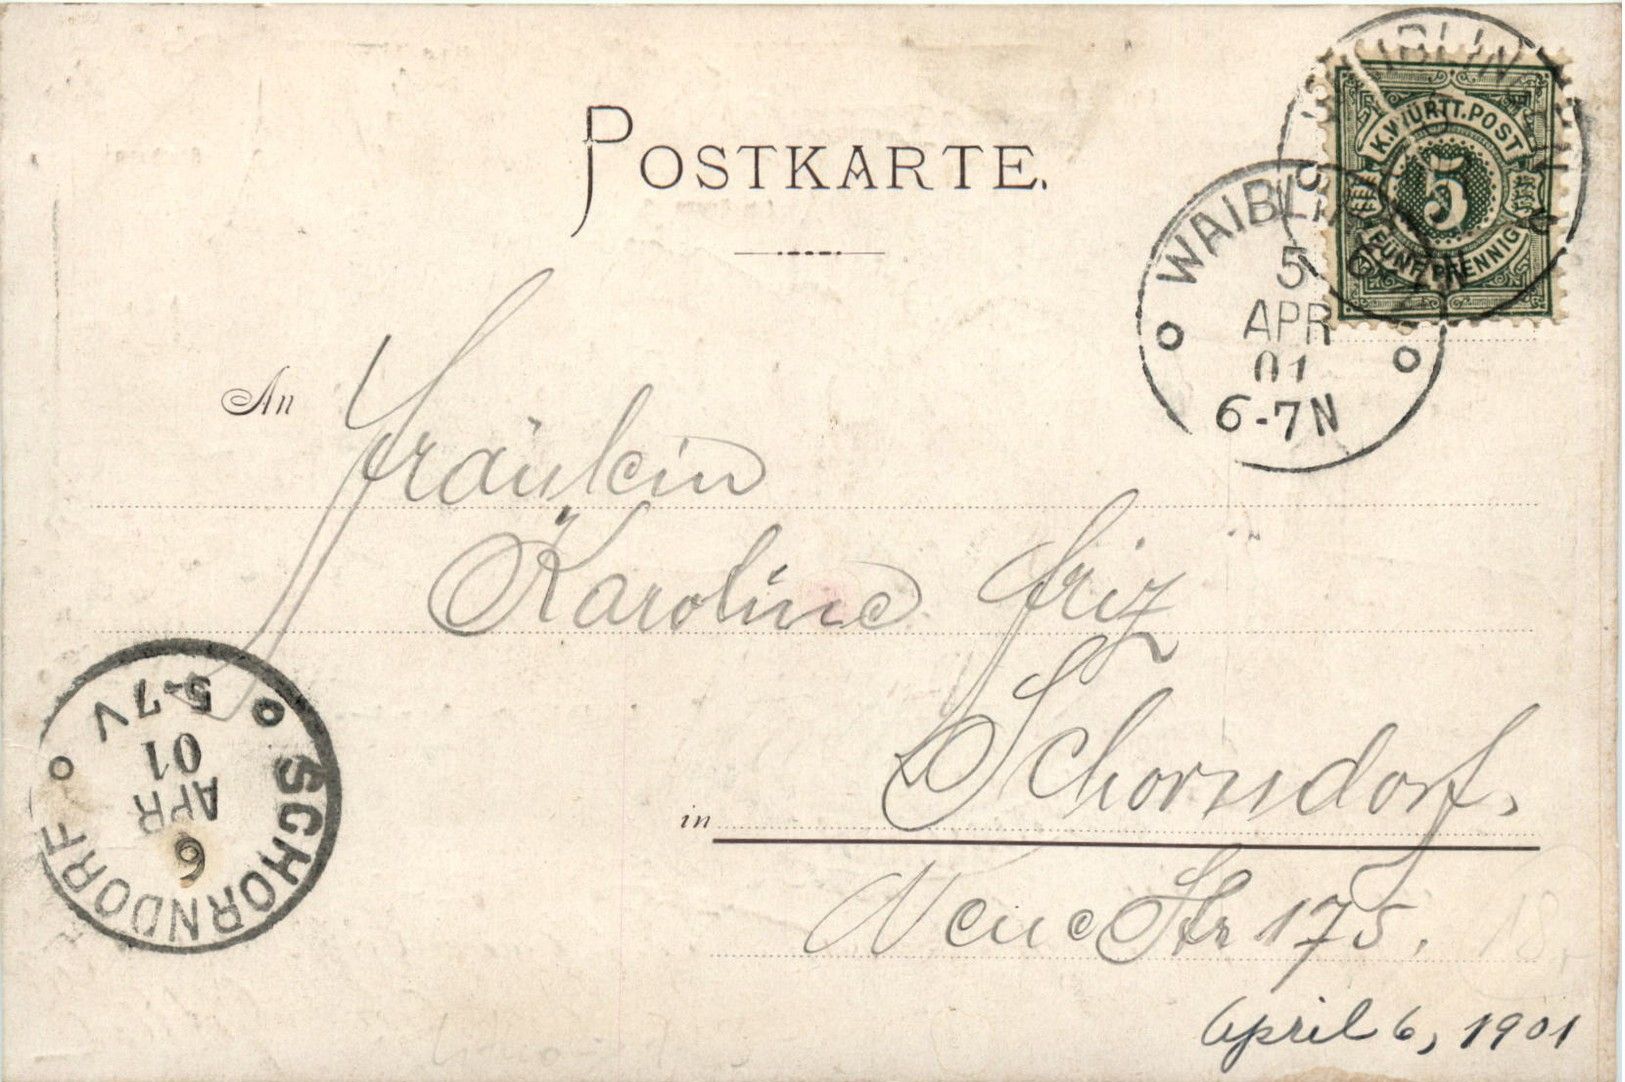 POSTKARTE.
K.WÜRTT.POST
5
FÜNF PFENNIG
WAIBLINGEN
5
APR
01
6-7N
An Fräulein
Karoline Friz
in Schorndorf.
Neue Str 175.
SCHORNDORF
6
APR
01
5-7V
18,-
April 6, 1901